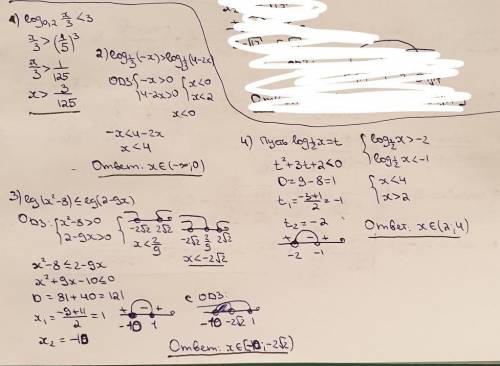 1) log₀,₂ x/3 < 3
x/3 > (1/5)³
x/3 > 1/125
x > 3/125
2) log⅓(-x) > log⅓(4-2x)
ОДЗ { -x>0 { x<0
4-2x>0 x<2
x<0
-x<4-2x
x<4
Ответ: x∈(-∞;0)
3) lg(x²-8) ≤ lg(2-9x)
ОДЗ: { x²-8>0 {
2-9x>0 x<2/9
-2√2 2√2
-2√2 2/9 2√2
x<-2√2
x²-8 ≤ 2-9x
x²+9x-10≤0
D = 81+40=121
x₁ = (-9+11)/2 = 1
x₂ = -10
+ - +
-10 1
с ОДЗ:
-10 -2√2 1
Ответ: x∈[-10; -2√2)
4) Пусть log½x=t
t²+3t+2≤0
D=9-8=1
t₁ = (-3+1)/2 = -1
t₂ = -2
+ - +
-2 -1
{ log½x>-2
log½x<-1
{ x<4
x>2
Ответ: x∈(2;4)